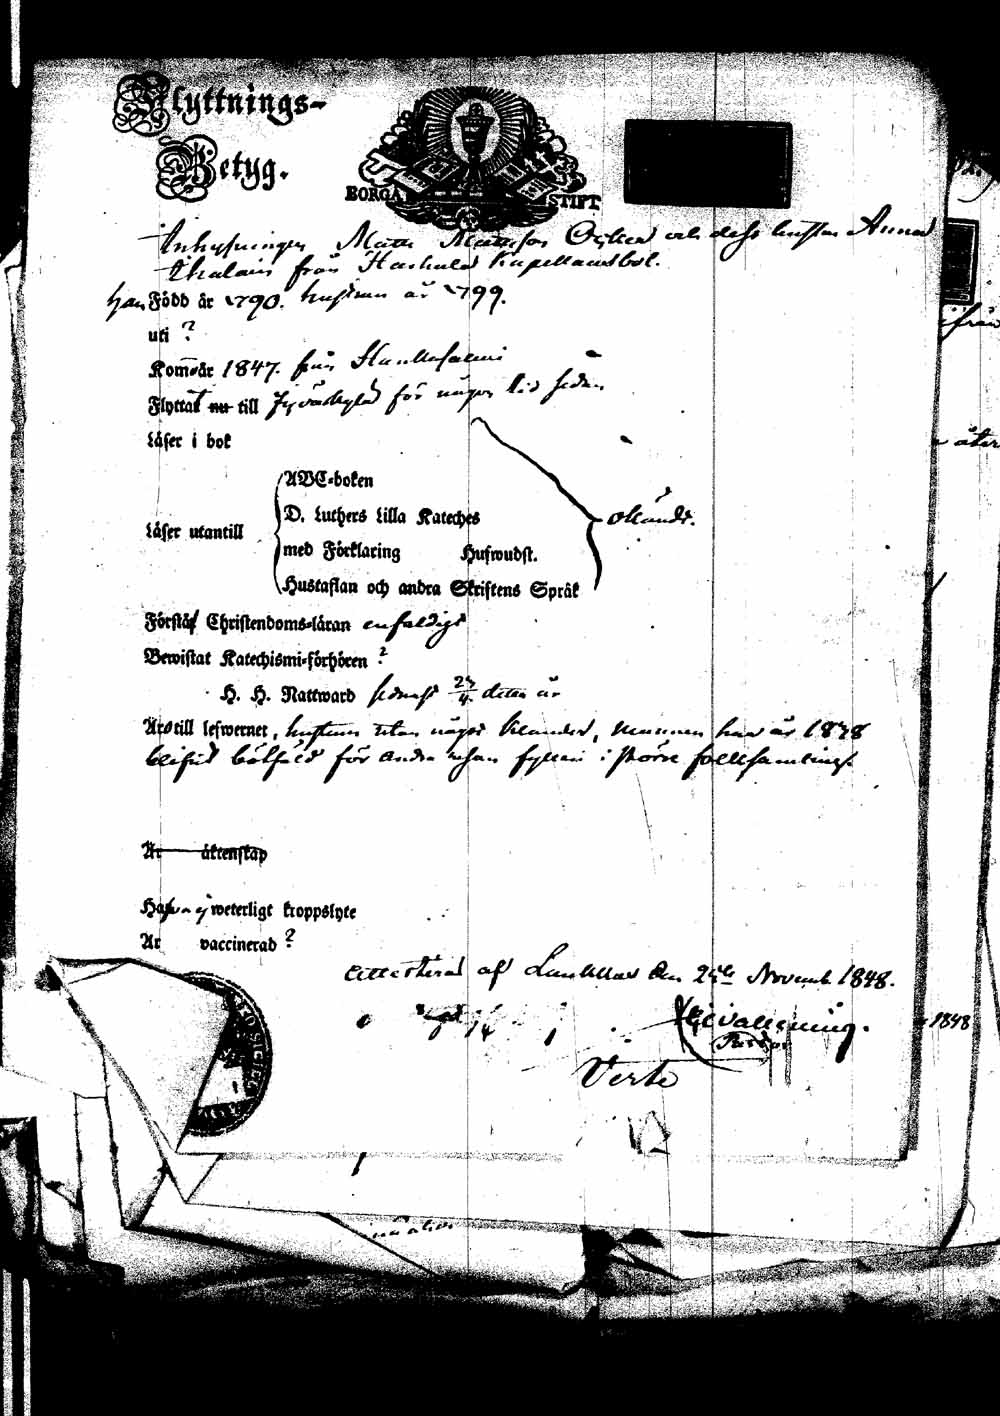 Flyttnings-
Betyg.
BORGÅ STIFT
Inhysningen Matts Mattsson och dess hustru Anna
från Kapellansbol.
han Född år 1790. hustrun år 1799.
uti ?
Kom år 1847. från Hankasalmi
Flyttat nu till Jyväskylä för någon tid sedan
Läser i bok
Läser utantill
ABC-boken
D. Luthers Lilla Kateches
med Förklaring Hufwudst.
Hustaflan och andra Skriftens Språk
okändt.
Förstå Christendoms-läran enfaldigt
Bewistat Katechismi-förhören ?
H. H. Nattward senast detta år
Äro till lefwernet, hustrun utan något klander, mannen har år 1848
blifvit bötfäld för andra resan fylleri i större folksamling.
Är äktenskap
Hafva ej weterligt kroppslyte
Är vaccinerad ?
Attesterad af Laukkas den November 1848.
Verte
1848